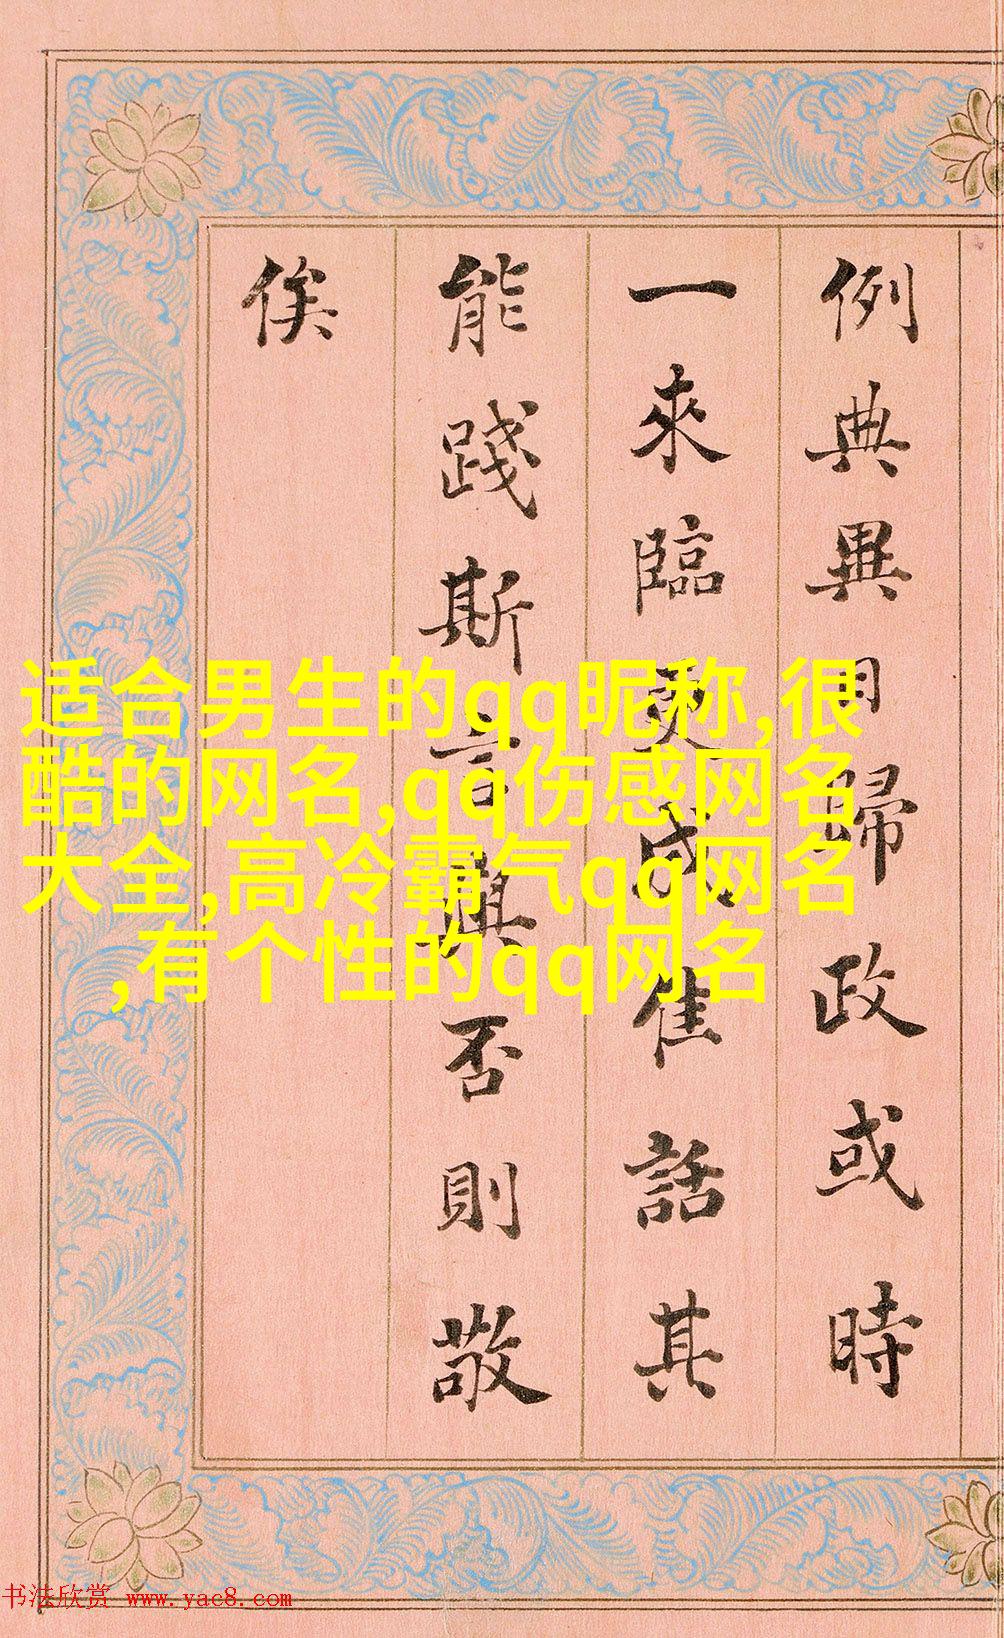 例典畢日歸政或時
一來臨更成佳話其
能踐斯言與否則敬
俟
适合男生的qq昵称,很
酷的网名,qq伤感网名
大全,高冷霸气qq网名
,有个性的qq网名
书法欣赏 www.yac8.com